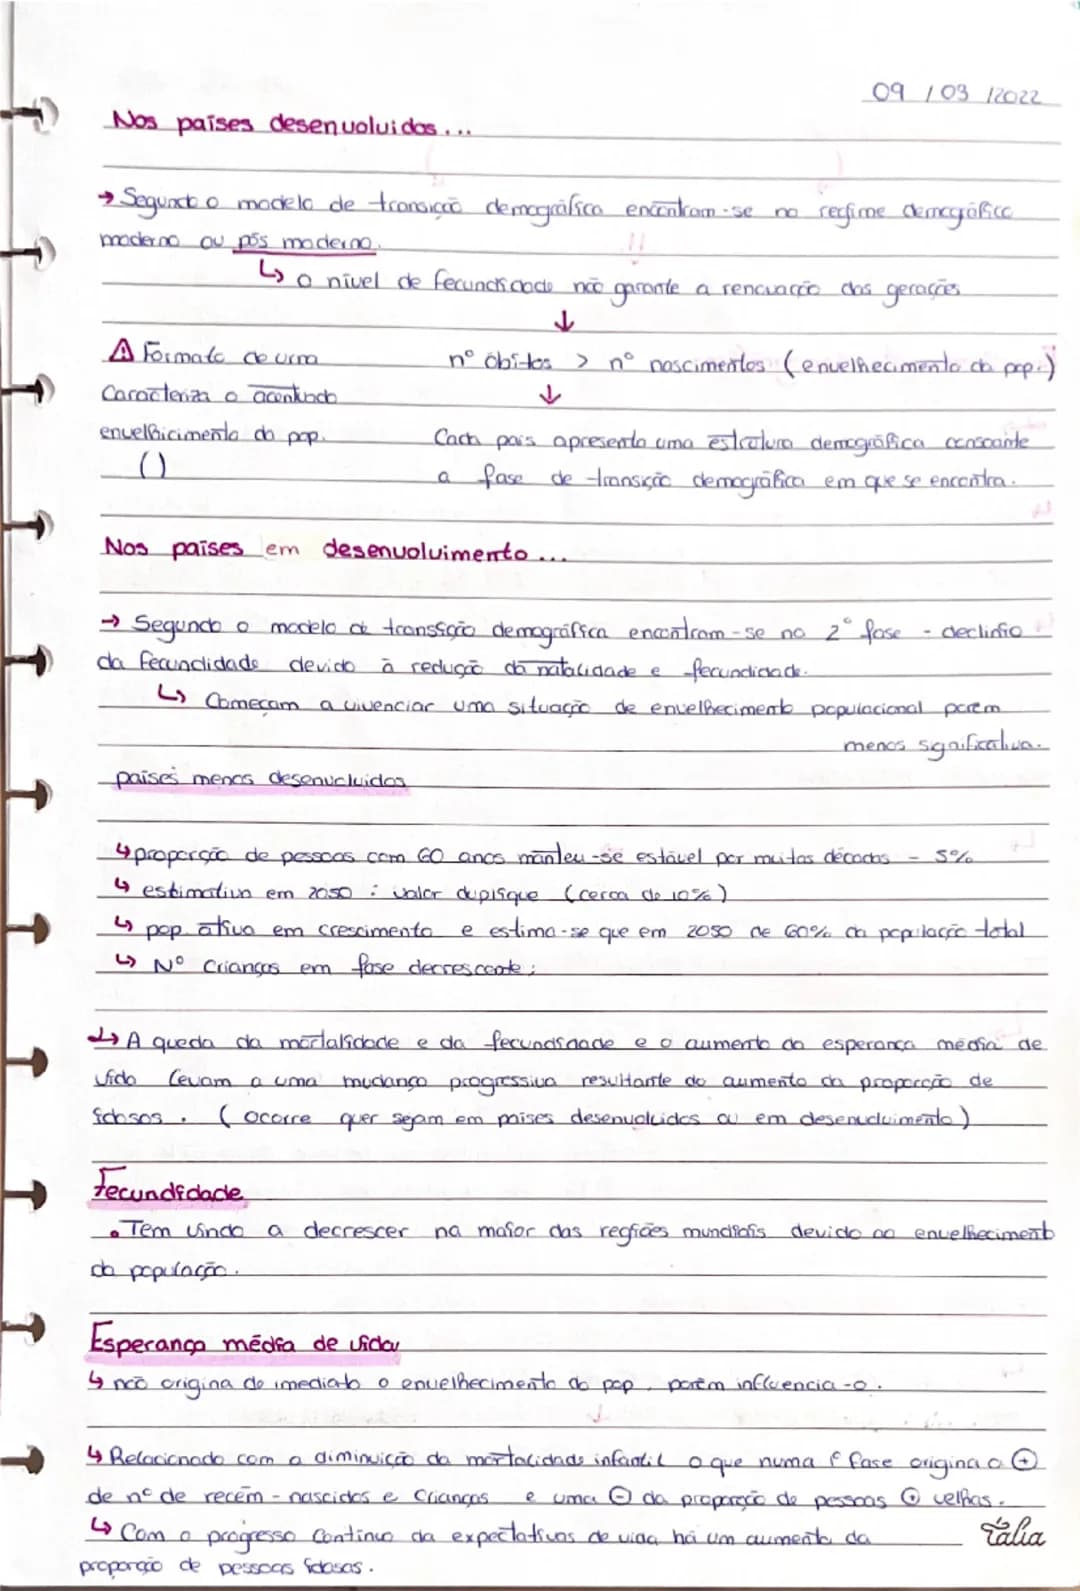 09 / 03 / 2022
Nos países desenvolvidos...
→ Segundo o modelo de transição demográfica encontram-se no regime demográfico
moderno ou pós moderno.
↳ o nível de fecundidade não garante a renovação das gerações
↓
⚠ Formato de urna
nº óbitos > nº nascimentos (envelhecimento da pop.)
Caracteriza o acentuado
↓
envelhicimento da pop.
Cada país apresenta uma estrutura demográfica consoante
()
a fase de transição demográfica em que se encontra.
Nos países em desenvolvimento...
→ Segundo o modelo de transição demográfica encontram-se na 2ª fase - declínio
da fecundidade devido à redução da natalidade e fecundidade.
↳ Começam a vivenciar uma situação de envelhecimento populacional porém
menos significativa.
países menos desenvolvidos
↳ proporção de pessoas com 60 anos manteu-se estável por muitas décadas - 5%
↳ estimativa em 2050 : valor duplique (cerca de 10%)
↳ pop. ativa em crescimento e estima-se que em 2050 de 60% da população total
↳ Nº Crianças em fase decrescente;
↳ A queda da mortalidade e da fecundidade e o aumento da esperança média de
vida levam a uma mudança progressiva resultante do aumento da proporção de
idosos. (ocorre quer sejam em países desenvolvidos ou em desenvolvimento)
Fecundidade
• Tem vindo a decrescer na maior das regiões mundiais devido ao envelhecimento
da população.
Esperança média de vida
↳ não origina de imediato o envelhecimento da pop, porém influencia-o.
↳ Relacionado com a diminuição da mortalidade infantil o que numa 1ª fase origina o ⊕
de nº de recém-nascidos e Crianças e uma ⊖ da proporção de pessoas ⊕ velhas.
↳ Com o progresso continuo da expectativas de vida há um aumento da
Tália
proporção de pessoas idosas.